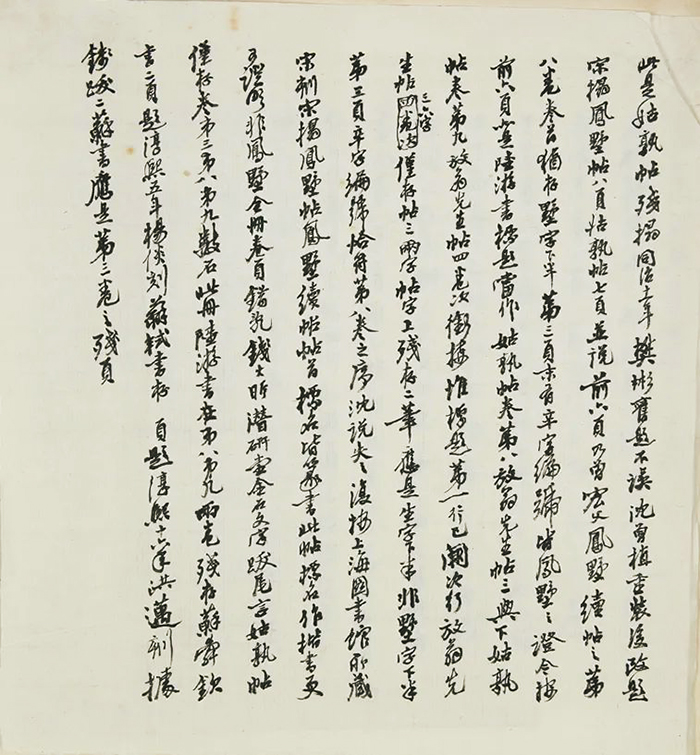 此是姑孰帖殘搨同治十一年樊彬舊題不誤沈曾植重裝後改題
宋搨鳳墅帖八頁姑孰帖七頁並說前六頁乃曾宏父鳳墅續帖之第
八卷卷首猶存墅字下半第三頁末有辛字編號皆鳳墅之證今按
前六頁蓋陸游書標題當作姑孰帖卷第八放翁先生帖三與下姑孰
帖卷第九放翁先生帖四卷次銜接惟標題第一行已闕次行放翁先
生帖四卷內三六字僅存帖三兩字帖字上殘存二筆應是生字下半非墅字下半
第三頁辛字編號恰符第八卷之序沈說失之復按上海圖書館所藏
宋刻宋搨鳳墅帖鳳墅續帖帖首標名皆篆書此帖標名作楷書更
可證明非鳳墅全冊卷首錯亂錢大昕潛研堂金石文字跋尾言姑孰帖
僅存卷第三第八第九數石此冊陸游書在第八第九兩卷殘存蘇舜欽
書二頁題淳熙五年楊倓刻蘇軾書存 頁題淳熙十六年洪邁刻據
錢跋二蘇書應是第三卷之殘頁